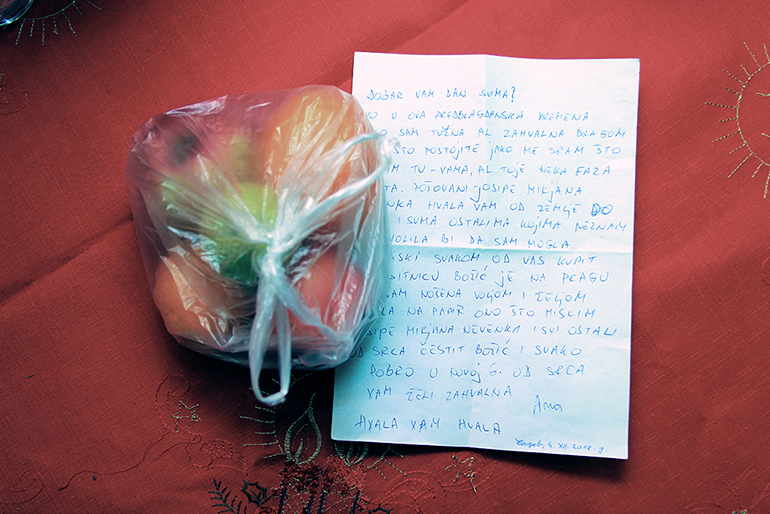 DOBAR VAM DAN SVIMA!
U OVA PREDBLAGDANSKA VREMENA
SAM TUŽNA AL ZAHVALNA DRAGOM
ŠTO POSTOJITE JAKO ME SRAM ŠTO
TU-VAMA, AL TO JE NEKA FAZA
POŠTOVANI JOSIPE MIRJANA
HVALA VAM OD ZEMLJE DO
I SVIMA OSTALIMA KOJIMA NEZNAM
VOLILA BI DA SAM MOGLA
SVAKOM OD VAS KUPIT
SITNICU BOŽIĆ JE NA PRAGU
NOŠENA VOLJOM I ŽELJOM
NA PAPIR ONO ŠTO MISLIM
MIRJANA NEVENKA I SVI OSTALI
OD SRCA ČESTIT BOŽIĆ I SVAKO
DOBRO U NOVOJ G. OD SRCA
VAM ŽELI ZAHVALNA
Ana
HVALA VAM HVALA
Zagreb, 4. XII. 2017. g.